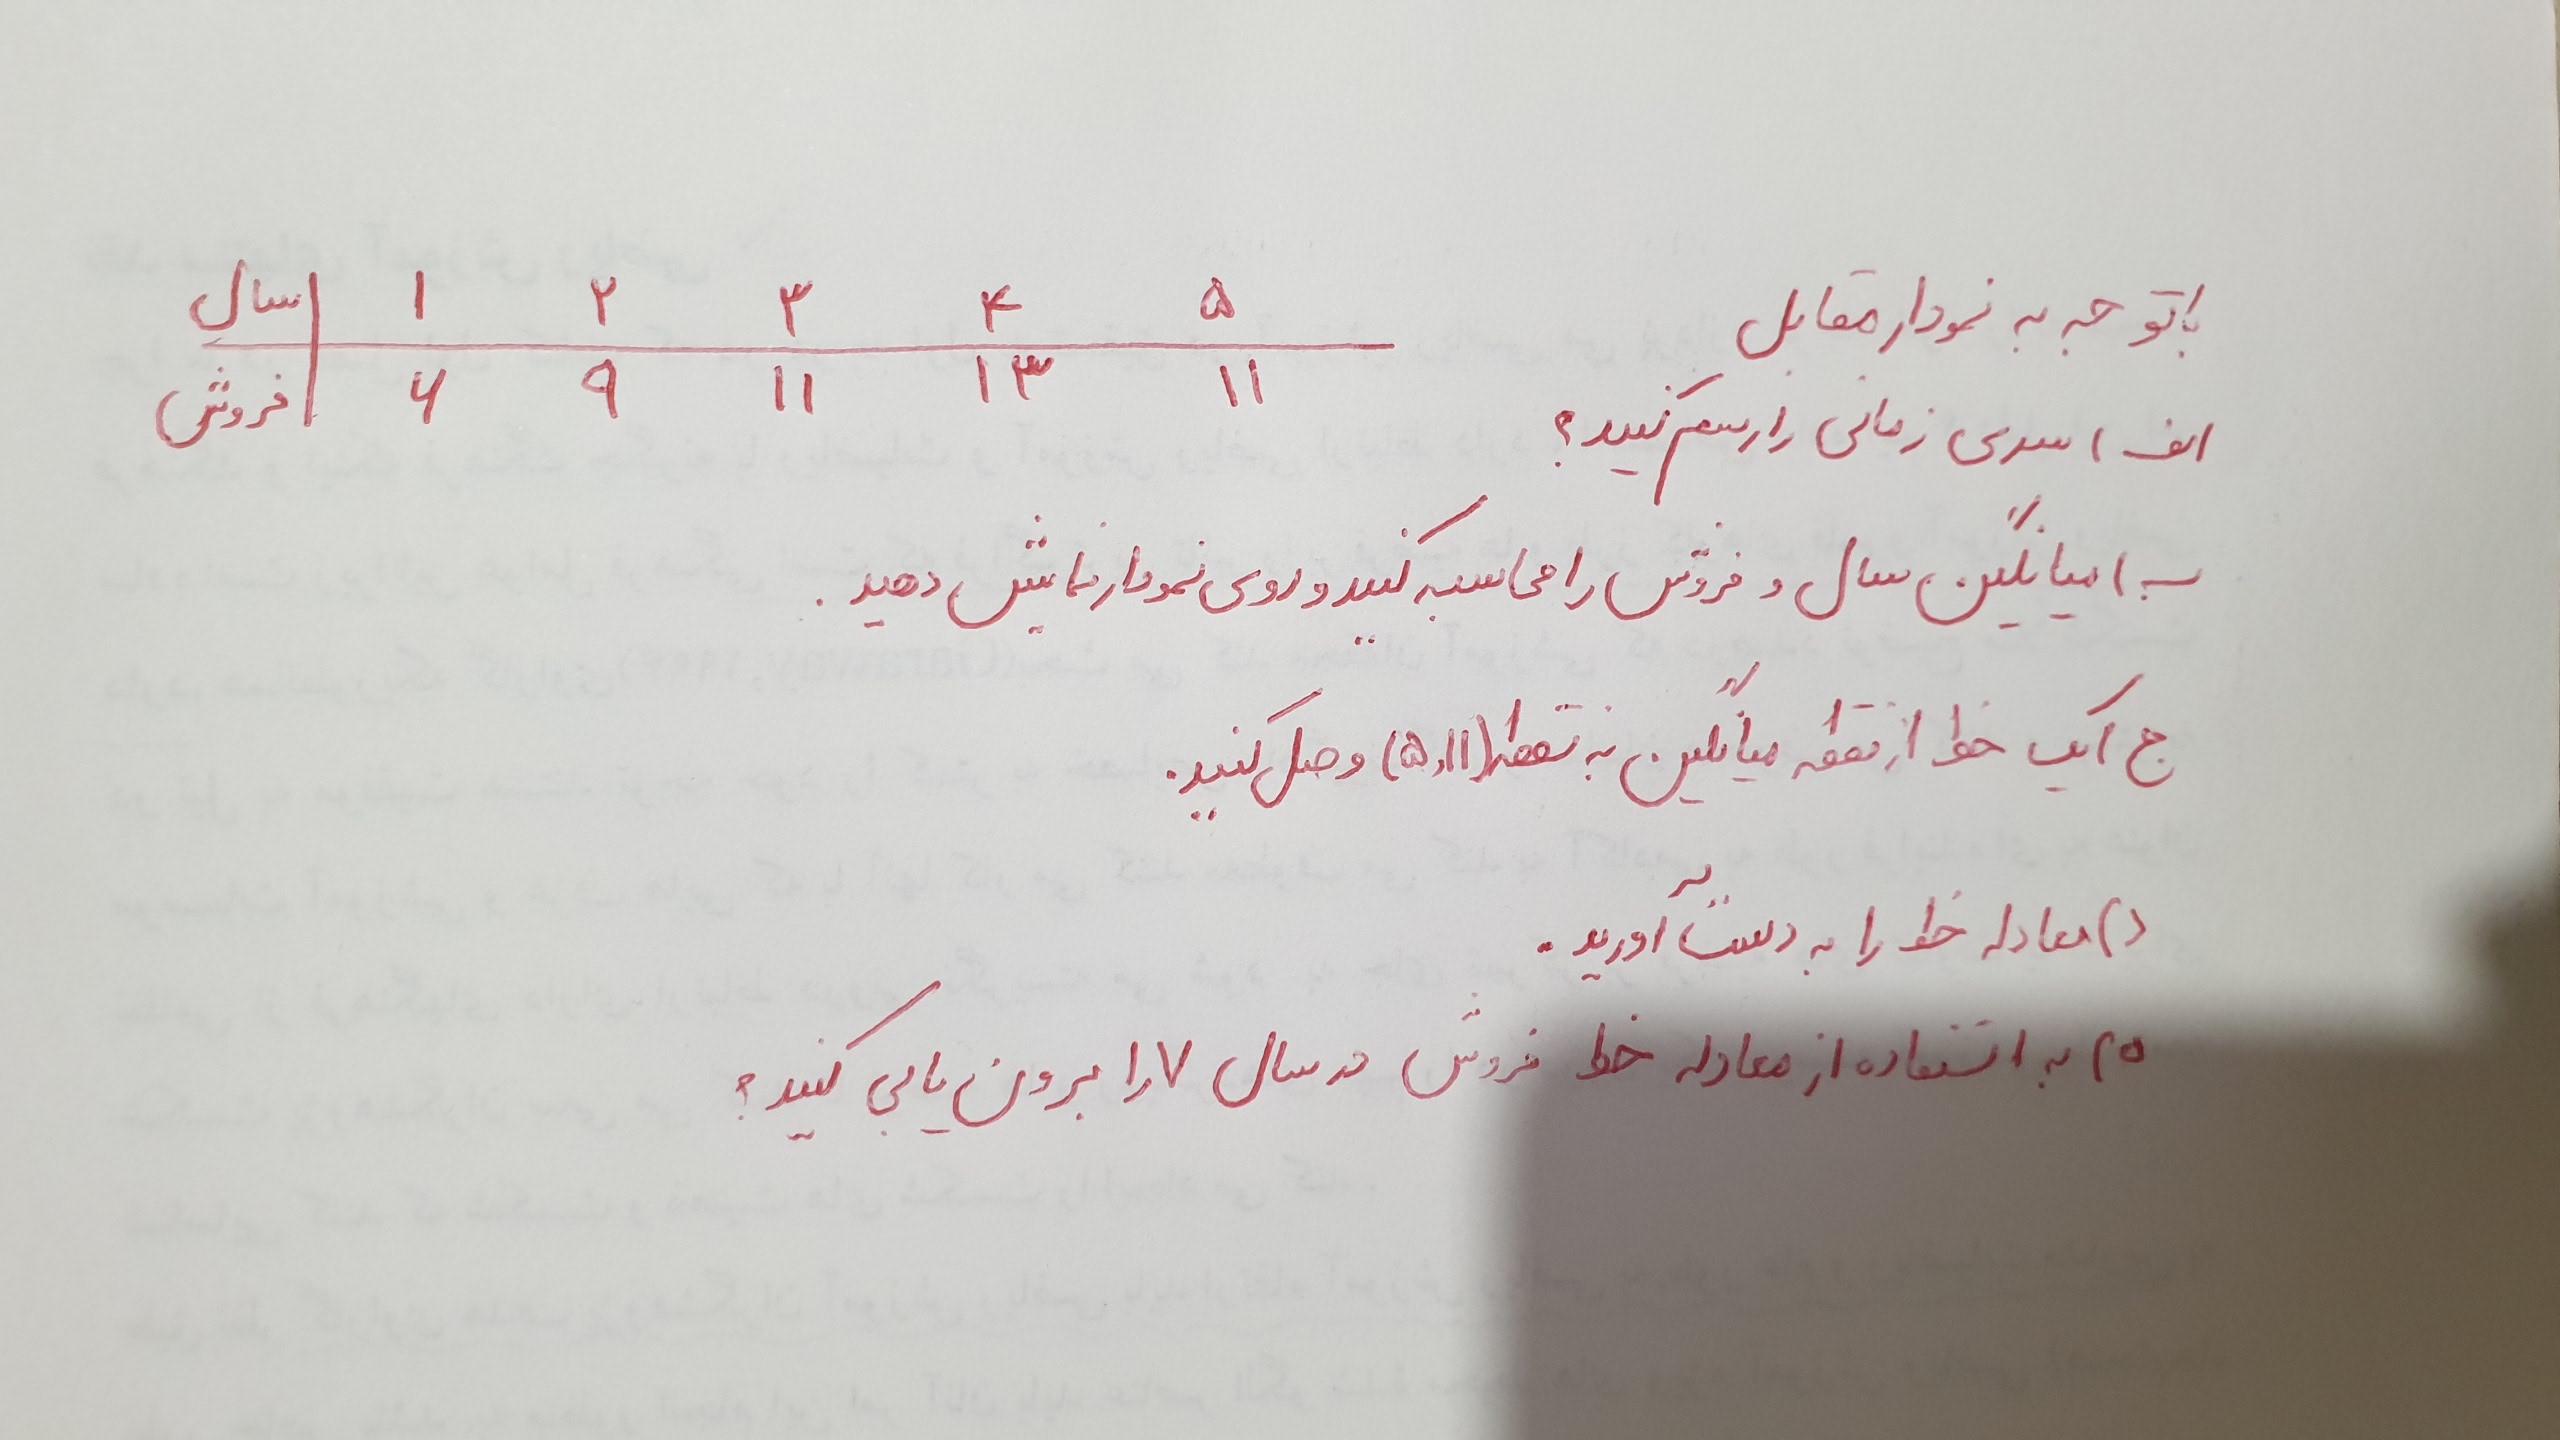 باتوجه به نمودار مقابل
سال ۱ ۲ ۳ ۴ ۵
فروش ۶ ۹ ۱۱ ۱۳ ۱۱
الف) سری زمانی را رسم کنید؟
ب) میانگین سال و فروش را محاسبه کنید و روی نمودار نمایش دهید.
ج) یک خط از نقطه میانگین به نقطه (۵,۱۱) وصل کنید.
د) معادله خط را به دست آورید.
ه) با استفاده از معادله خط فروش در سال ۷ را برون یابی کنید؟